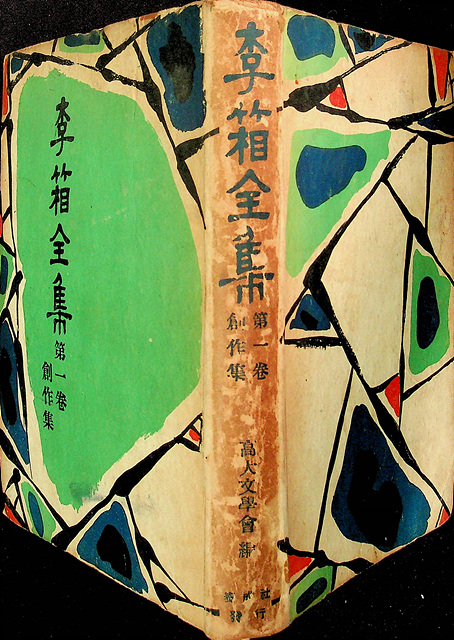 李箱全集
第一卷
創作集
李箱全集
第一卷
創作集
高大文學會 編
社
發行